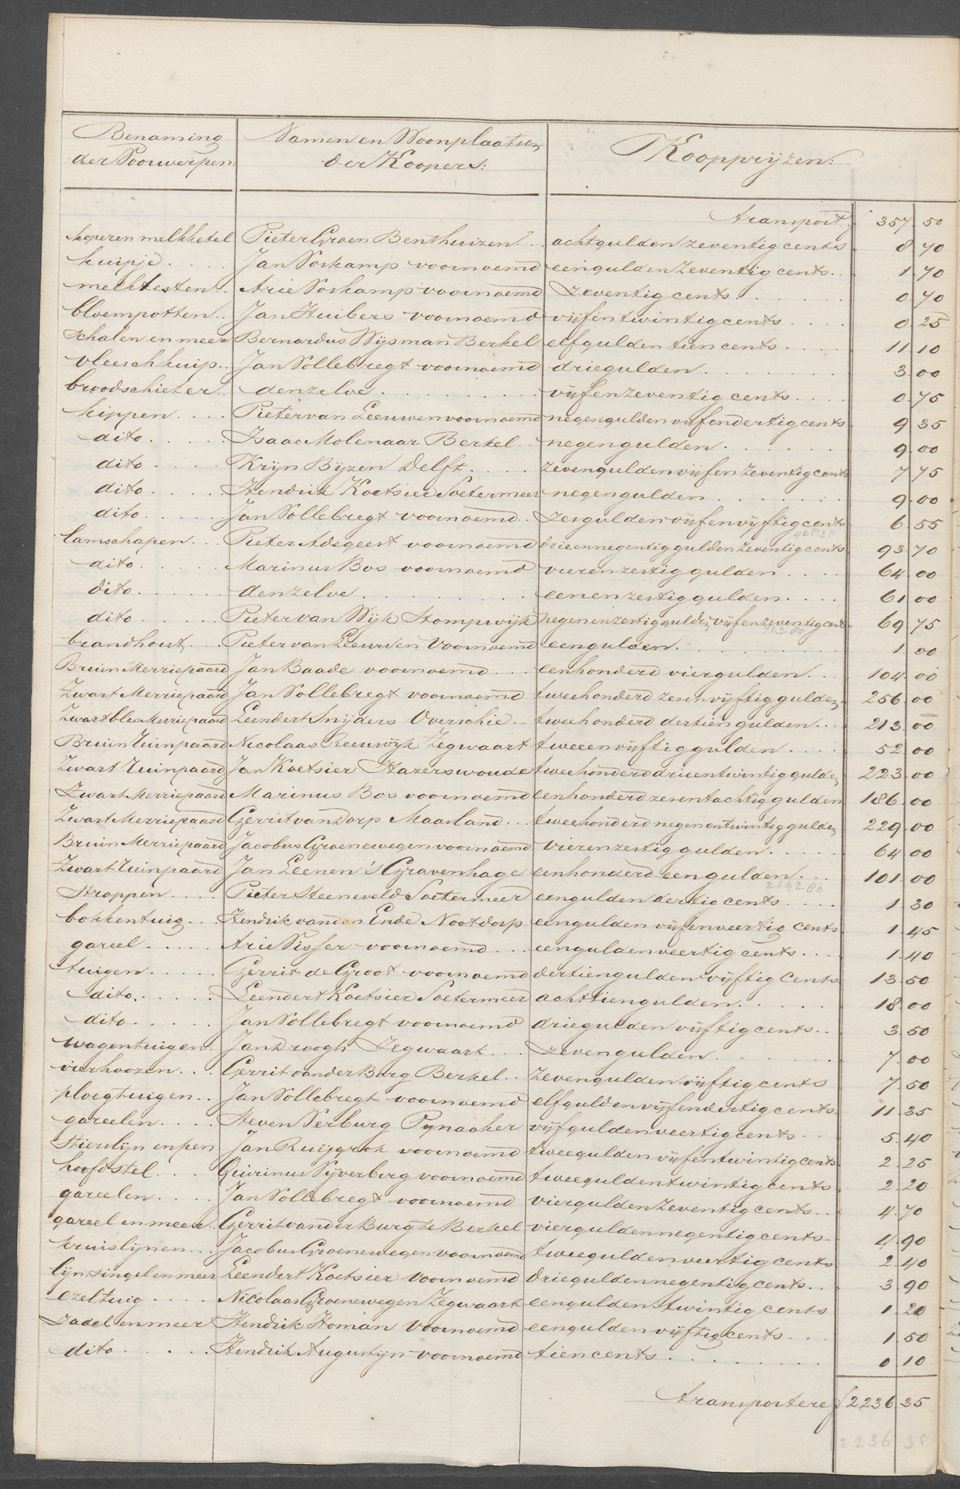 Benaming der Voorwerpen: Namen en Woonplaatsen der Koopers: Koopprijzen:
Transport f 357.50
koperen melkketel Pieter Groen Benthuizen achtgulden zeventig cents 8.70
kuipje Jan Voskamp voornoemd eengulden zeventig cents 1.70
melktesten Arie Voskamp voornoemd zeventig cents 0.70
bloempotten Jan Huibers voornoemd vijfentwintig cents 0.25
schalen en meer Bernardus Wijsman Berkel elfgulden tien cents 11.10
vleeschkuip Jan Vollebregt voornoemd driegulden 3.00
broodschieter denzelve vijfenzeventig cents 0.75
kippen Pieter van Leeuwen voornoemd negengulden vijfendertig cents 9.35
dito Isaac Molenaar Berkel negengulden 9.00
dito Krijn Bijzen Delft zevengulden vijfenzeventig cents 7.75
dito Hendrik Koetsier Soetermeer negengulden 9.00
dito Jan Vollebregt voornoemd zesgulden vijfenvijftig cents 6.55
lamschapen Pieter Adegeest voornoemd drieennegentig gulden zeventig cents 93.70
dito Marinus Bos voornoemd vierenzestig gulden 64.00
dito denzelve eenenzestig gulden 61.00
dito Pieter van Wijk Stompwijk negenenzestig gulden vijfenzeventig cents 69.75
brandhout Pieter van Leeuwen voornoemd eengulden 1.00
Bruin Merriepaard Jan Baade voornoemd eenhonderd viergulden 104.00
Zwart Merriepaard Jan Vollebregt voornoemd tweehonderd zesenvijftig gulden 256.00
Zwartbles Merriepaard Leendert Snijders Overschie tweehonderd dertien gulden 213.00
Bruin Ruinpaard Nicolaas Leeuwijk Zegwaart tweeenvijftig gulden 52.00
Zwart Ruinpaard Jan Koetsier Hazerswoude tweehonderd drieentwintig gulden 223.00
Zwart Merriepaard Marinus Bos voornoemd eenhonderd zesentachtig gulden 186.00
Zwart Merriepaard Gerrit van Dorp Maasland tweehonderd negenentwintig gulden 229.00
Bruin Merriepaard Jacobus Groenewegen voornoemd vierenzestig gulden 64.00
Zwart Ruinpaard Jan Leenen 's Gravenhage eenhonderd eengulden 101.00
stroppen Pieter Steeneveld Soetermeer eengulden dertig cents 1.30
bokkentuig Hendrik van den Ende Nootdorp eengulden vijfenveertig cents 1.45
gareel Arie Visser voornoemd eengulden veertig cents 1.40
tuigen Gerrit de Groot voornoemd dertiengulden vijftig cents 13.50
dito Leendert Koetsier Soetermeer achttiengulden 18.00
dito Jan Vollebregt voornoemd driegulden vijftig cents 3.50
wagentuigen Jan Droogh Zegwaart zevengulden 7.00
Gerrit van der Burg Berkel zevengulden vijftig cents 7.50
ploegtuigen Jan Vollebregt voornoemd elfgulden vijfendertig cents 11.35
gareelen Steven Verburg Pijnacker vijfgulden veertig cents 5.40
Jan Ruijgrok voornoemd tweegulden vijfentwintig cents 2.25
hoofdstel Quirinus Vijverberg voornoemd tweegulden twintig cents 2.20
gareelen Jan Vollebregt voornoemd viergulden zeventig cents 4.70
gareel en meer Gerrit van der Burg te Berkel viergulden negentig cents 4.90
kruislijnen Jacobus Groenewegen voornoemd tweegulden veertig cents 2.40
lijn singel en meer Leendert Koetsier voornoemd driegulden negentig cents 3.90
ezeltuig Nicolaas Groenewegen Zegwaart eengulden twintig cents 1.20
zadel en meer Hendrik Homan voornoemd eengulden vijftig cents 1.50
dito Hendrik Augustijn voornoemd tien cents 0.10
Transportere f 2236.35
2236 35